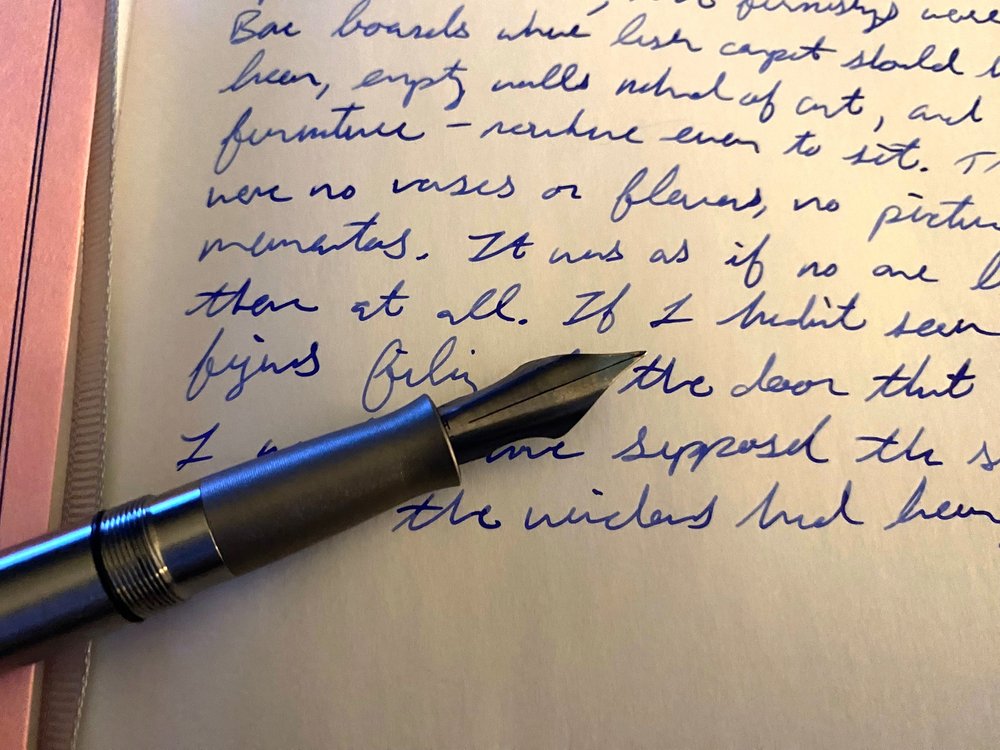 furnishings were
Bare boards where lush carpet should
been, empty walls instead of art, and
furniture – nowhere even to sit.
were no vases or flowers, no
mementos. It was as if no one
there at all. If I hadn't seen
the door that
I supposed the
the windows had been